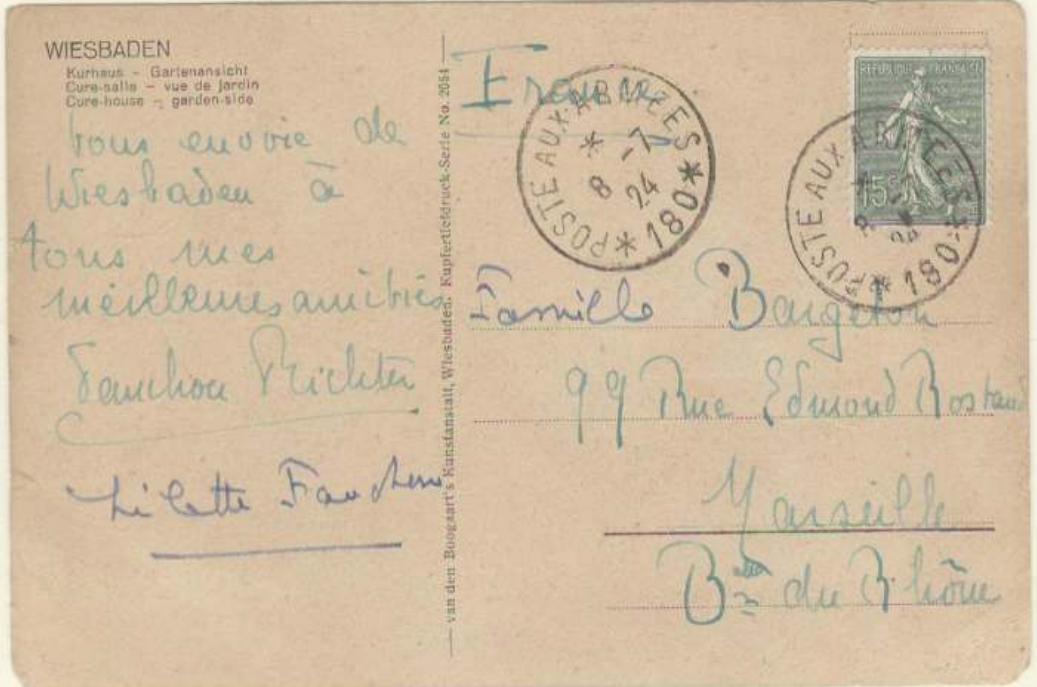 WIESBADEN
Kurhaus - Gartenansicht
Cure-salle - vue de jardin
Cure-house - garden-side
vous envoie de
Wiesbaden à
tous mes
meilleures amitiés
Fanchon Richter
Lilette
van den Boogaart's Kunstanstalt, Wiesbaden. Kupfertiefdruck-Serie No. 2054
France
POSTE AUX ARMEES * 180 *
* 8 -7 24
REPUBLIQUE FRANÇAISE
15c
POSTE AUX ARMEES * 180 *
Famille Bargeton
99 Rue Edmond Rostand
Marseille
B. du Rhône